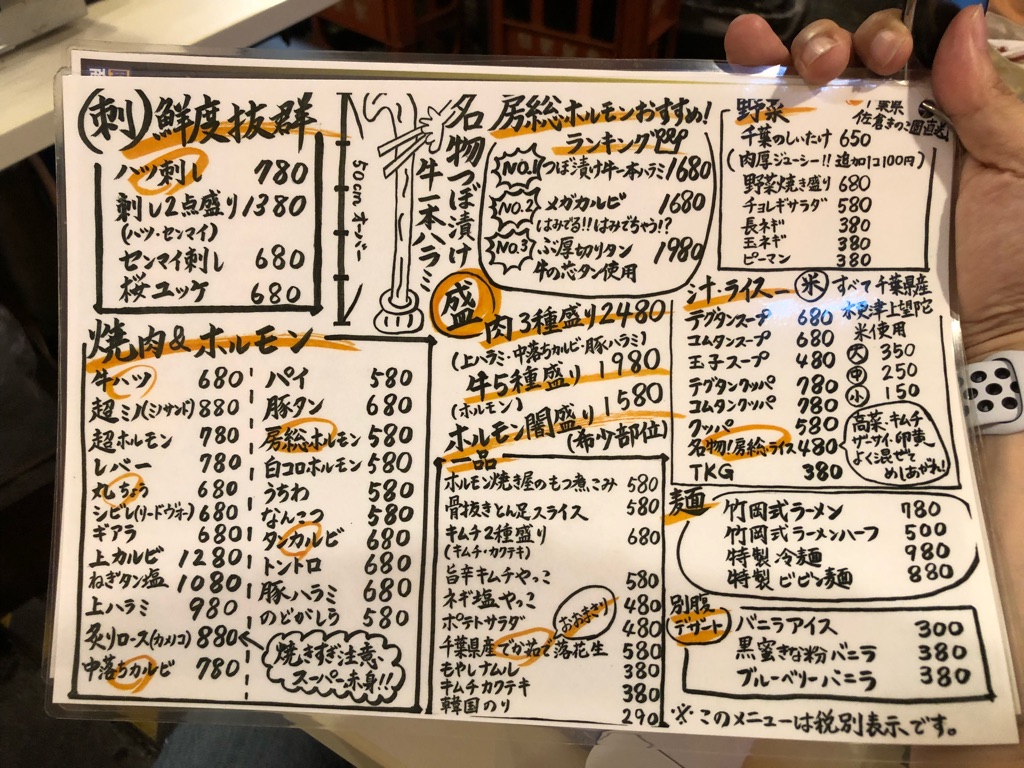 (刺)鮮度抜群
ハツ刺し 780
刺し2点盛り 1380
(ハツ・センマイ)
センマイ刺し 680
桜ユッケ 680
50cmオーバー
名物つぼ漬け
牛一本ハラミ
房総ホルモンおすすめ!
ランキング
NO.1 つぼ漬け牛一本ハラミ 1680
NO.2 メガカルビ 1680
はみでる!!はみでちゃう!?
NO.3 ぶ厚切りタン 1980
牛の芯タン使用
野菜
佐倉きのこ園直送
千葉のしいたけ 650
(肉厚ジューシー!! 追加1コ100円)
野菜焼き盛り 680
チョレギサラダ 580
長ネギ 380
玉ネギ 380
ピーマン 380
焼肉&ホルモン
牛ハツ 680
超ミノ(ミノサンド) 880
超ホルモン 780
レバー 780
丸ちょう 680
シビレ(リードヴォー) 680
ギアラ 680
上カルビ 1280
ねぎタン塩 1080
上ハラミ 980
炙りロース(カメノコ) 880
中落ちカルビ 780
パイ 580
豚タン 680
房総ホルモン 580
白コロホルモン 580
うちわ 580
なんこつ 580
タンカルビ 680
トントロ 680
豚ハラミ 680
のどがしら 580
焼きすぎ注意
スーパー赤身!!
盛
肉3種盛り 2480
(上ハラミ・中落ちカルビ・豚ハラミ)
牛5種盛り 1980
(ホルモン)
ホルモン闇盛り 1580
(希少部位)
一品
ホルモン焼き屋のもつ煮こみ 580
骨抜きとん足スライス 580
キムチ2種盛り 680
(キムチ・カクテキ)
旨辛キムチやっこ 580
ネギ塩やっこ 480
ポテトサラダ 480
おおまさり
千葉県産でか茹で落花生 580
もやしナムル 380
キムチカクテキ 380
韓国のり 290
汁・ライス
米 すべて千葉県産
木更津上望陀
米使用
大 350
中 250
小 150
テグタンスープ 680
コムタンスープ 680
玉子スープ 480
テグタンクッパ 780
コムタンクッパ 780
クッパ 580
名物!房総ライス 480
TKG 380
高菜・キムチ
ザーサイ・卵黄
よく混ぜて
めしあがれ!
麺
竹岡式ラーメン 780
竹岡式ラーメンハーフ 500
特製 冷麺 980
特製 ビビン麺 880
別腹
デザート
バニラアイス 300
黒蜜きな粉バニラ 380
ブルーベリーバニラ 380
※このメニューは税別表示です。